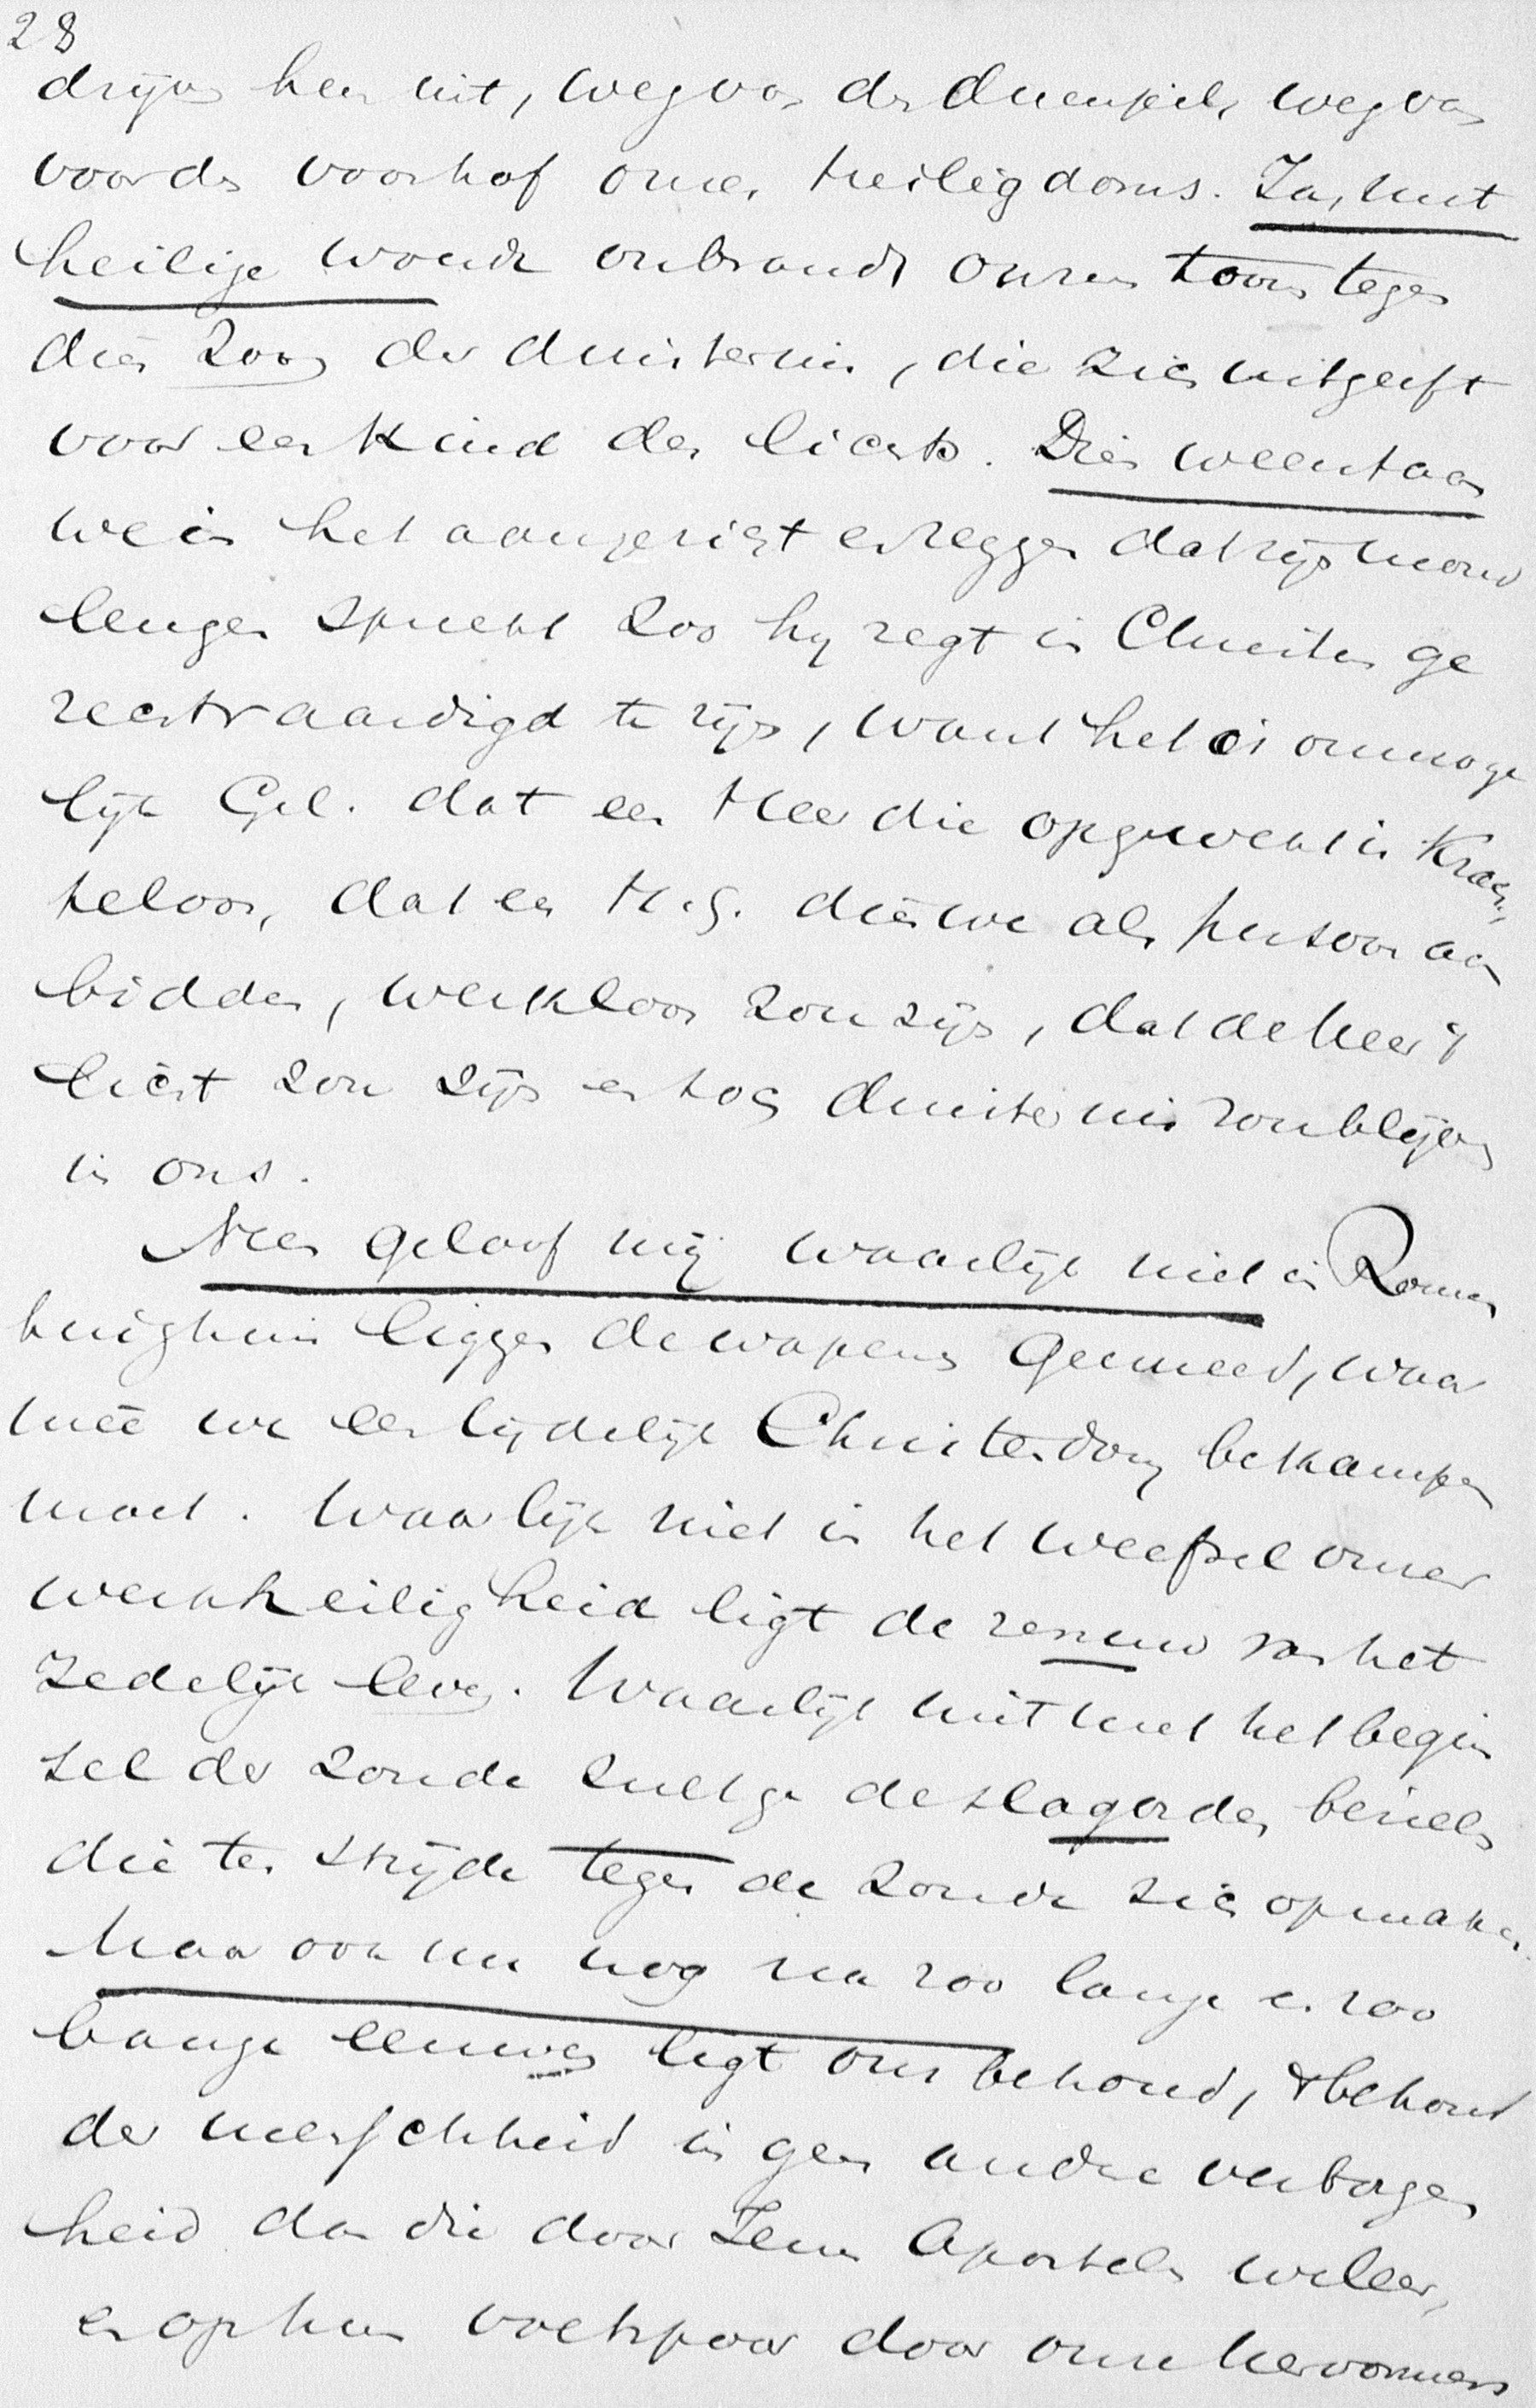 28
drijven hen uit, weg van den drempel, weg van
voor den voorhof onzes Heiligdoms. Ja, met
heilige woede ontbrandt onzen toorn tegen
dien zoon der duisternis, die zich uitgeeft
voor een kind des lichts. Dien weerstaan
we in het aangezigt en zeggen dat zijn mond
leugen spreekt zoo hij zegt in Christus ge
rechtvaardigd te zijn, want het is onmoge
lijk Gel. dat een Heer die opgewekt is krach
teloos, dat een H.G. dien we als persoon aan
bidden, werkloos zou zijn, dat de Heer 't
licht zou zijn en toch duisternis zou blijven
in ons.
Neen geloof mij waarlijk niet in Romes
tuighuis liggen de wapens gesmeed, waar
meê we een lijdelijk Christendom bekampen
moet. Waarlijk niet in het weefsel onzer
werkheiligheid ligt de zenuw van het
zedelijk leven. Waarlijk niet met het begin
sel der zonde zult ge de slagorden bezielen
die ten strijde tegen de zonde zich opmaken.
Maar ook nu nog na zoo lange en zoo
bange eeuwen ligt ons behoud, 't behoud
der menschheid in geen andre verborgen
heid dan die door Jezus Apostelen
en op hun voetspoor door onze hervormers